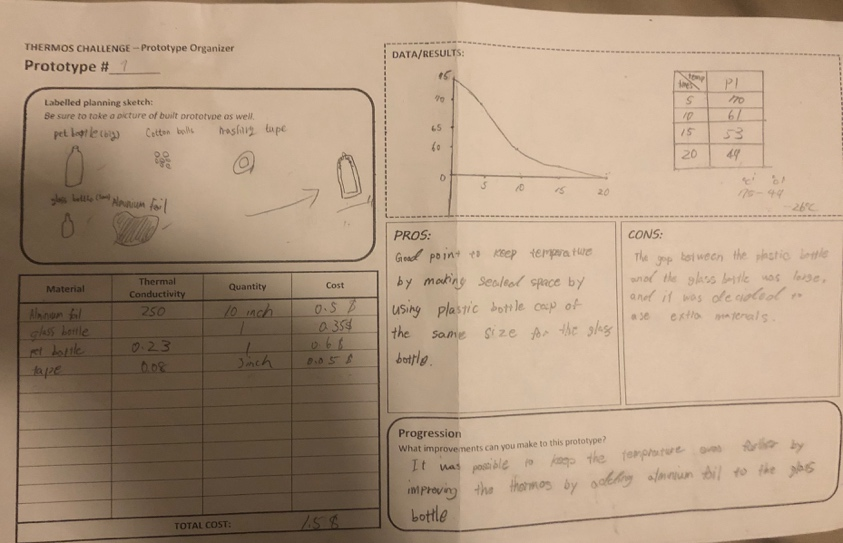 THERMOS CHALLENGE – Prototype Organizer
Prototype # 1
Labelled planning sketch:
Be sure to take a picture of built prototype as well.
pet bottle (big)
Cotton balls
tape
glass bottle
foil
Material
Thermal Conductivity
Quantity
Cost
foil
250
10 inch
0.5 $
glass bottle
1
0.35$
pet bottle
0.23
1
0.6 $
tape
0.08
3inch
0.05 $
TOTAL COST:
1.5 $
DATA/RESULTS:
70
65
60
0
5
10
15
20
temp
P1
5
70
10
61
15
53
20
49
-26°C
PROS:
Good point to keep temperature
by making sealed space by
using plastic bottle cap of
the same size for the glass
bottle.
CONS:
The gap between the plastic bottle
and the glass bottle was large,
and it was decided to
use extra materials.
Progression
What improvements can you make to this prototype?
It was possible to keep the temprature even further by
improving the thermos by adding foil to the glass
bottle